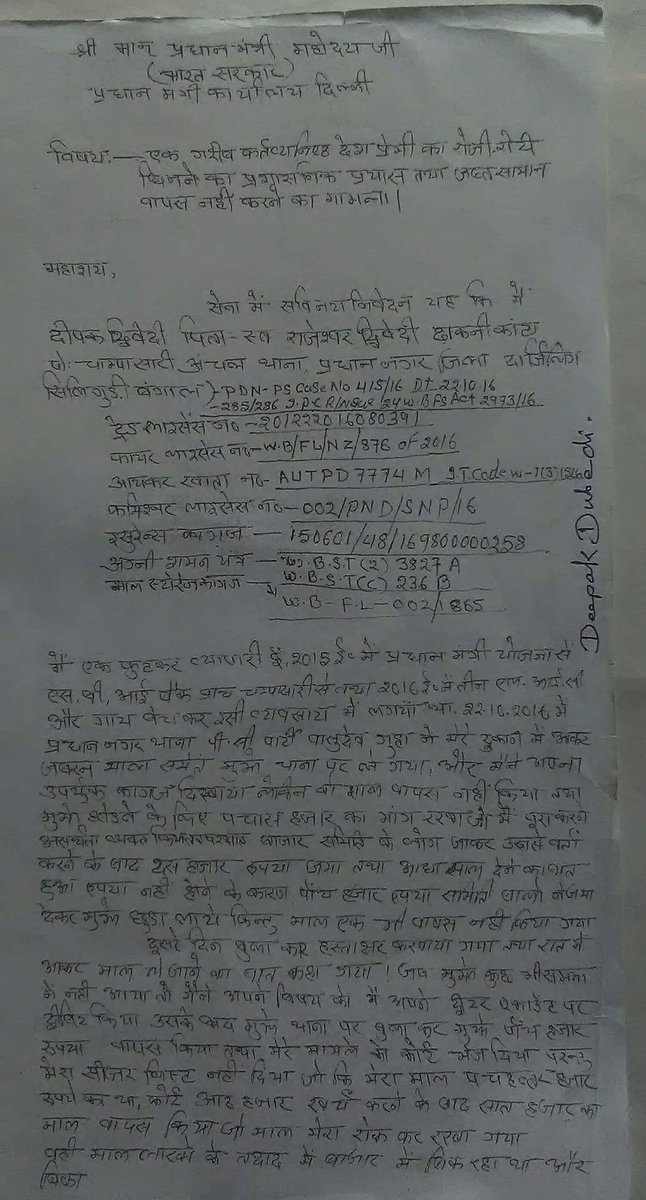 श्री मान् प्रधानमंत्री महोदय जी
(भारत सरकार)
प्रधान मंत्री कार्यालय दिल्ली
विषय:— एक गरीब कर्तव्यनिष्ठ देश प्रेमी का रोजी-रोटी
छिनने का प्रशासनिक प्रयास तथा जब्त सामान
वापस नही करने का मामला।
महाशय,
सेवा में सविनय निवेदन यह कि मैं
दीपक द्विवेदी पिता - स्व राजेश्वर द्विवेदी ढाकनीकाटा
पो: चाम्पासारी अंचल थाना, प्रधान नगर जिला दार्जिलिंग
सिलिगुड़ी बंगाल)-PDN-PS Case No 415/16 Dt 22.10.16
-285/286 I.P.C R/W Sec 24 W.B FS Act 2973/16
ट्रेड लाइसेंस नं० -201222016080391
फायर लाइसेंस नं०-W.B/FL/NZ/876 of 2016
आयकर खाता नं०- AUTPD7774M I.T. Code W-1(3)
लाइसेंस नं०-002/PND/SNP/16
इंसुरेन्स कागज — 150601/48/169800000258
अग्नी शमन यंत्र — W.B.S.T(2) 3827 A
माल स्टोरेज कागज — W.B.S.T(C) 236 B
W.B-F.L-002/1865
Deepak Dubedi.
मैं एक फुटकर व्यापारी हूँ, 2015 ई० में प्रधान मंत्री योजना से
एस. बी. आई बैंक ब्रांच चम्पासारी से तथा 2016 ई० में तीन एल. आई. सी
और गाय बेच कर इसी व्यवसाय में लगाया था. 22.10.2016 में
प्रधान नगर थाना पी सी पार्टी वासुदेव गुहा ने मेरे दुकान में आकर
जबरन माल समेत मुझे थाना पर ले गया, और मैंने अपना
उपर्युक्त कागज दिखाया लेकिन वो माल वापस नही किया तथा
मुझे छोडने के लिए पचास हजार का मांग रखा जो मैं पूरा करने
असमर्थता व्यक्त बाजार समिति के लोग जाकर उनसे वार्ता
करने के बाद दस हजार रुपया जमा तथा आधा माल देने का बात
हुआ रुपया नही होने के कारण पाँच हजार रुपया समिति वालो ने जमा
देकर मुझे छुडा लाये किन्तु माल एक भी वापस नही किया गया
दूसरे दिन बुला कर हस्ताक्षर करवाया गया तथा रात में
आकर माल ले जाने का बात कहा गया! जब मुझे कुछ भी समझ
में नही आया तो मैंने अपने विषय को मैं अपने ट्वीटर एकाउंट पर
ट्वीट किया उसके बाद मुझे थाना पर बुला कर मुझे पाँच हजार
रुपया वापस किया तथा मेरे मामले को कोर्ट भेज दिया परन्तु
मेरा सीजर लिस्ट नही दिया जो कि मेरा माल पचहत्तर हजार
रुपये का था, कोर्ट आठ हजार खर्च करने के बाद सात हजार का
माल वापस किया जो माल मेरा रोक कर रखा गया
वही माल के तादाद में बाजार में बिक रहा था और
बिका